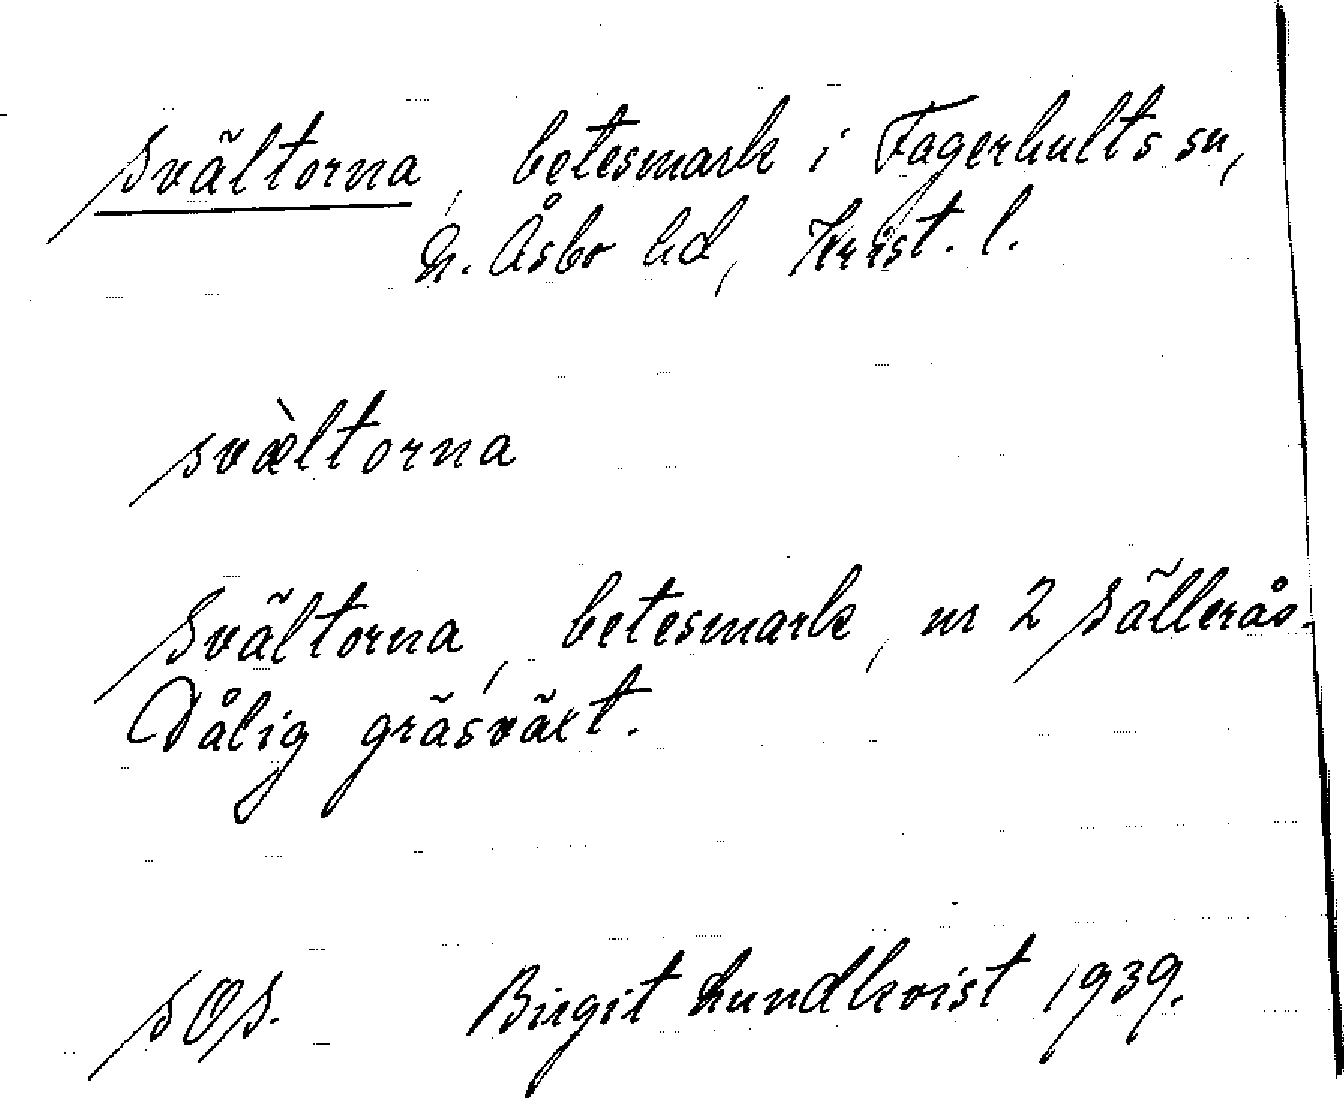 Svältorna, betesmark i Fagerhults sn,
N. Åsbo hd, Krist. l.
svæ̀ltorna
Svältorna, betesmark, nr 2 Sällerås.
Dålig gräsväxt.
SOS. Birgit Lundkvist 1939.